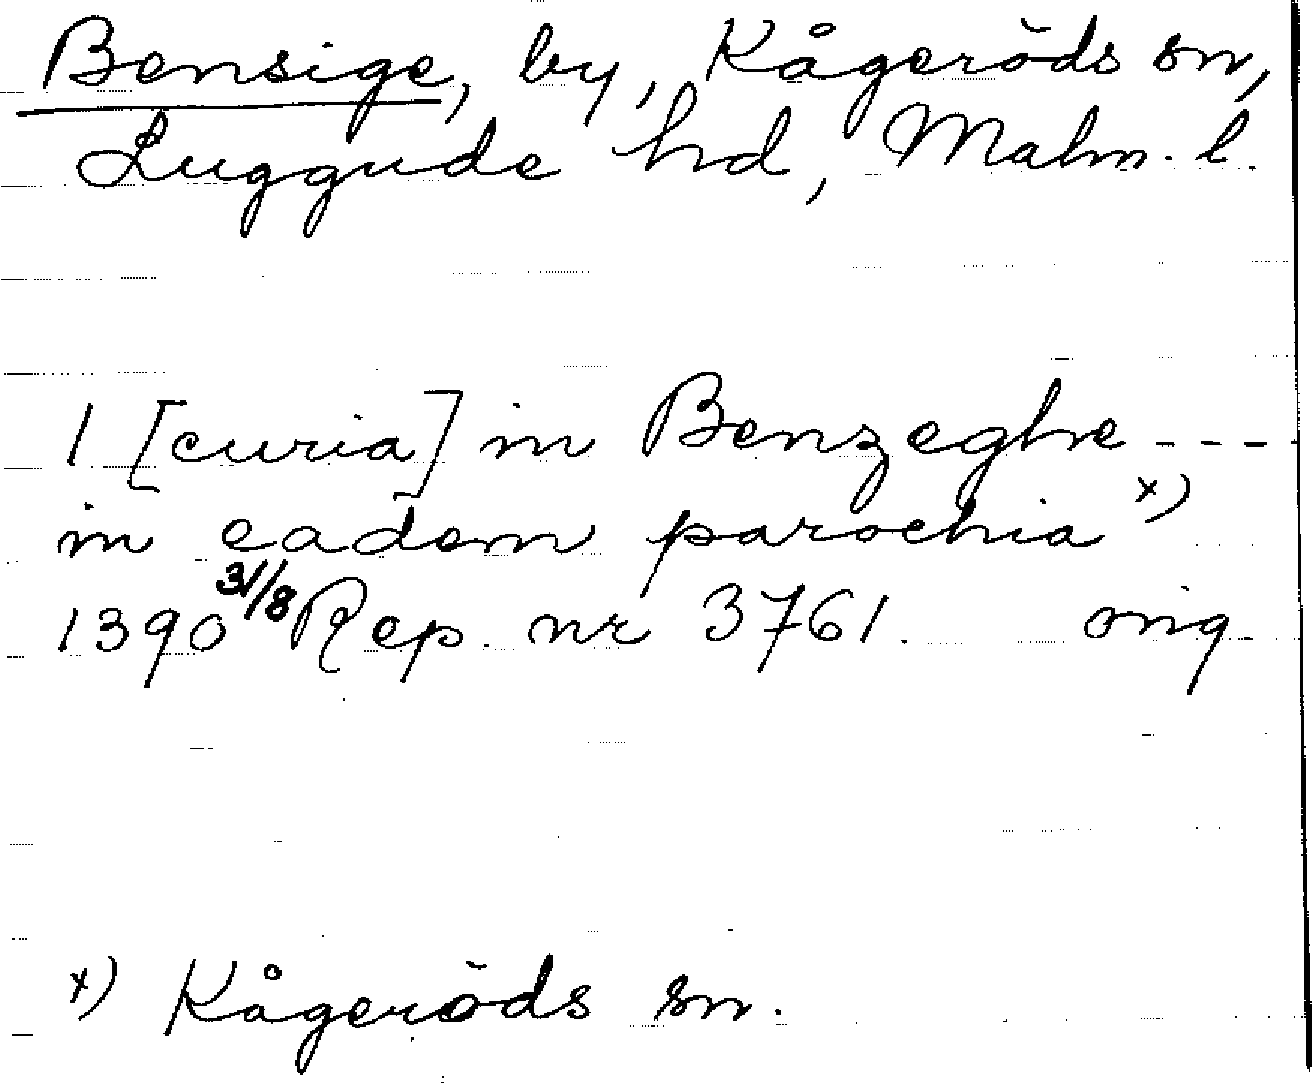 Bensige, by, Kågeröds sn,
Luggude hd, Malm. l.
1 [curia] in Benzeghe ----
in eadem parochia x)
1390 31/8 Rep. nr 3761. orig
x) Kågeröds sn.